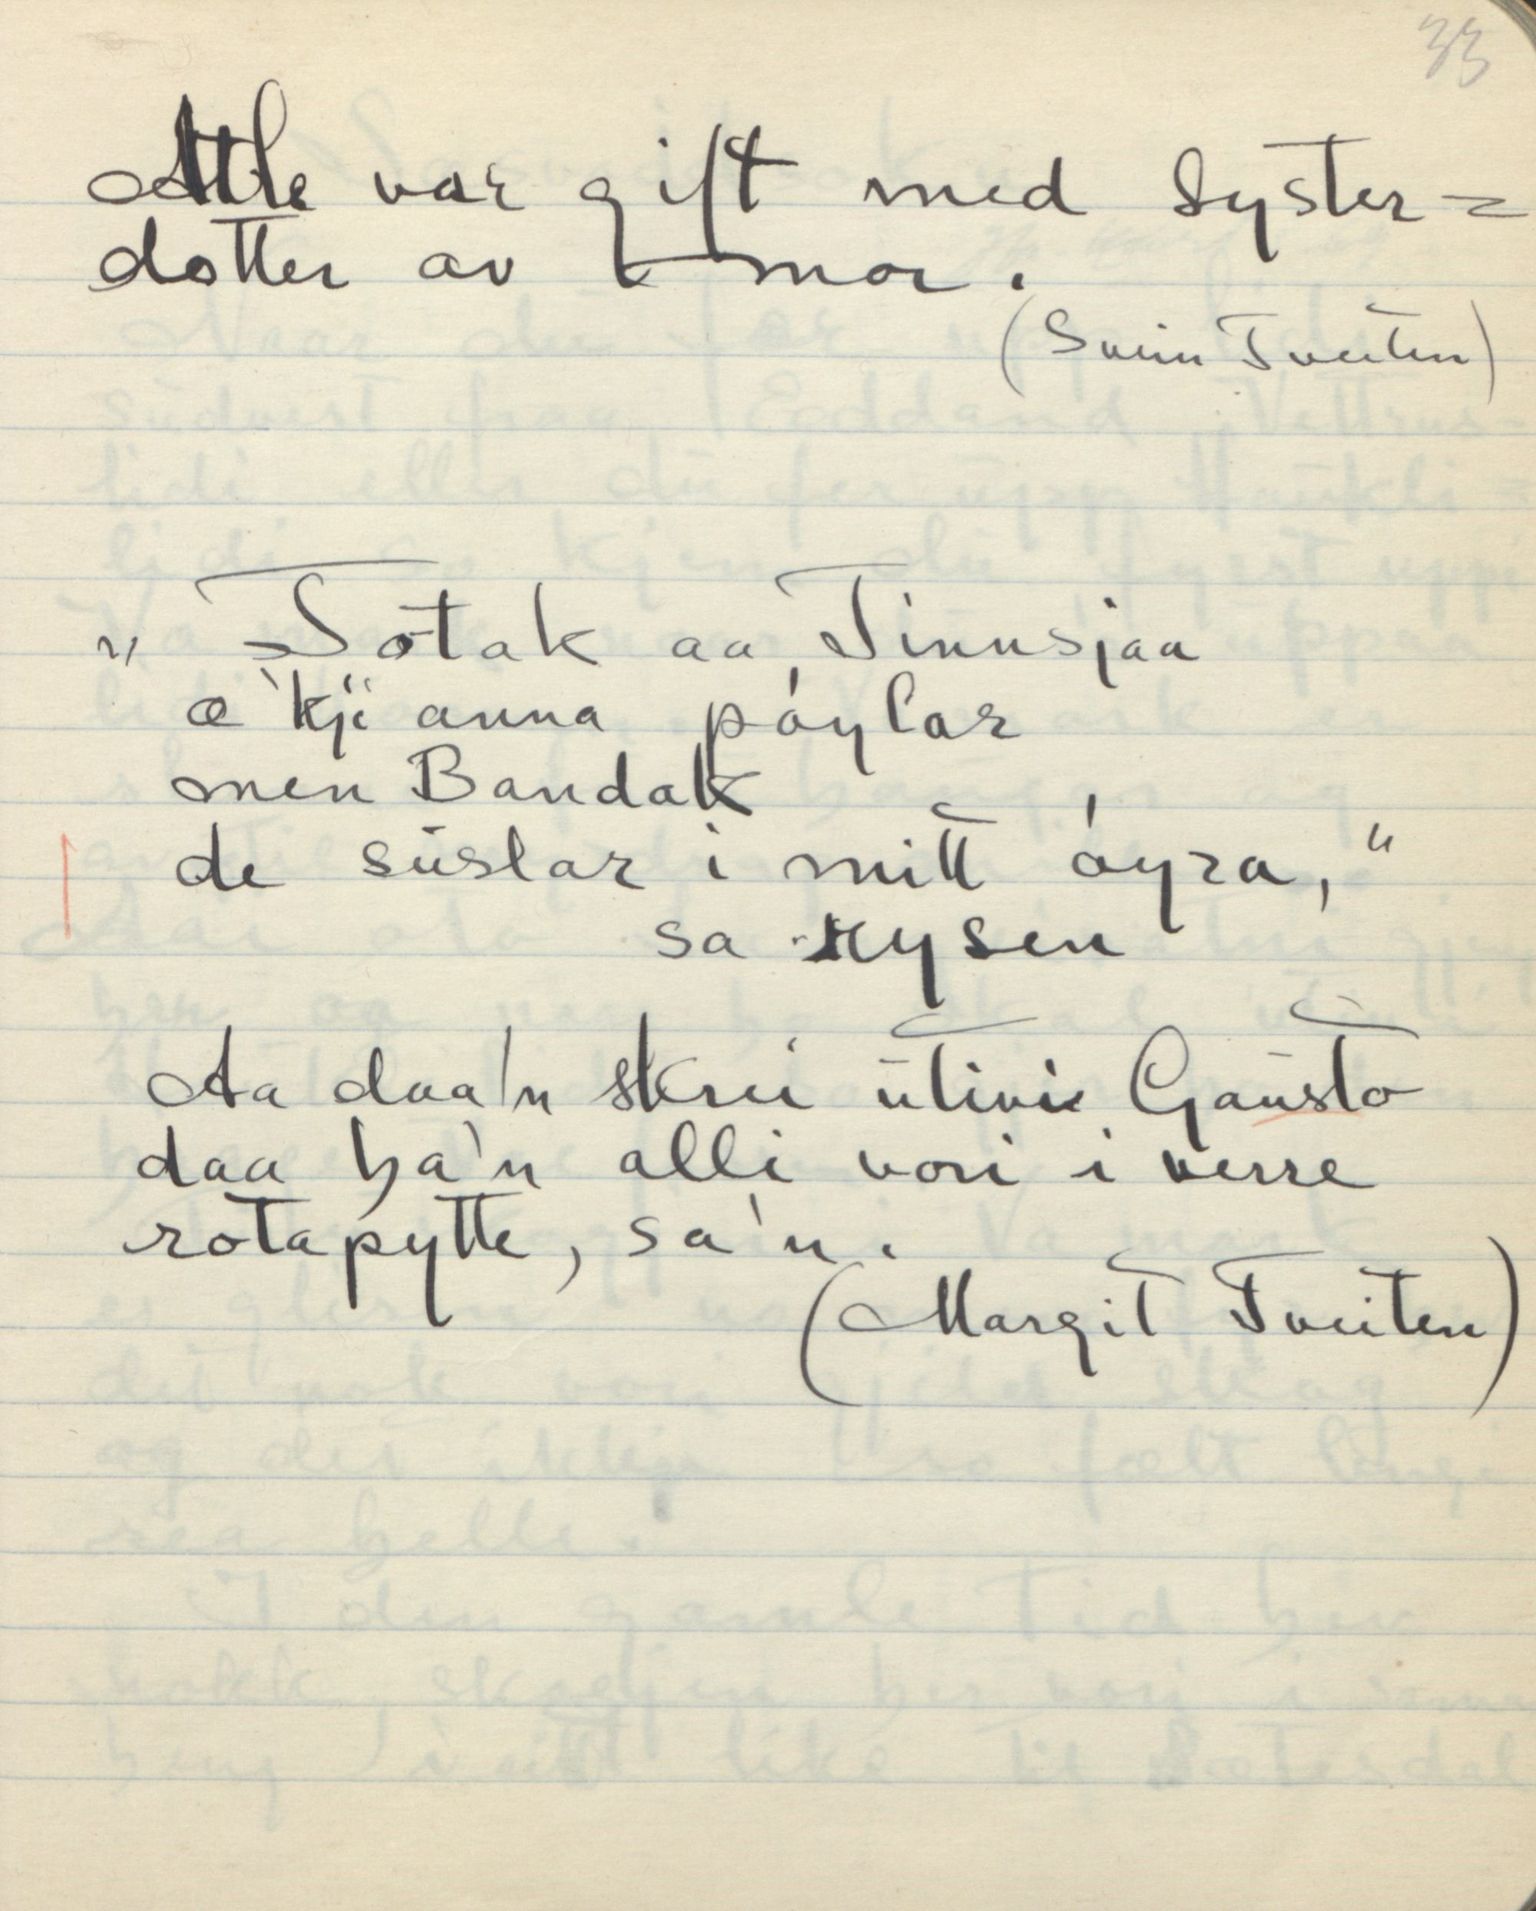 33
Atle var gift med Syster=
dotter av mor.
(Svein Tveiten)
„Totak aa Tinnsjaa
æ'kji anna póylar
men Bandak
de suslar i mitt óyra,"
sa rysen
Aa daa'n skrei utivi Gausto
daa ha'n alli vori i verre
rotapytte, sa'n.
(Margit Tveiten)